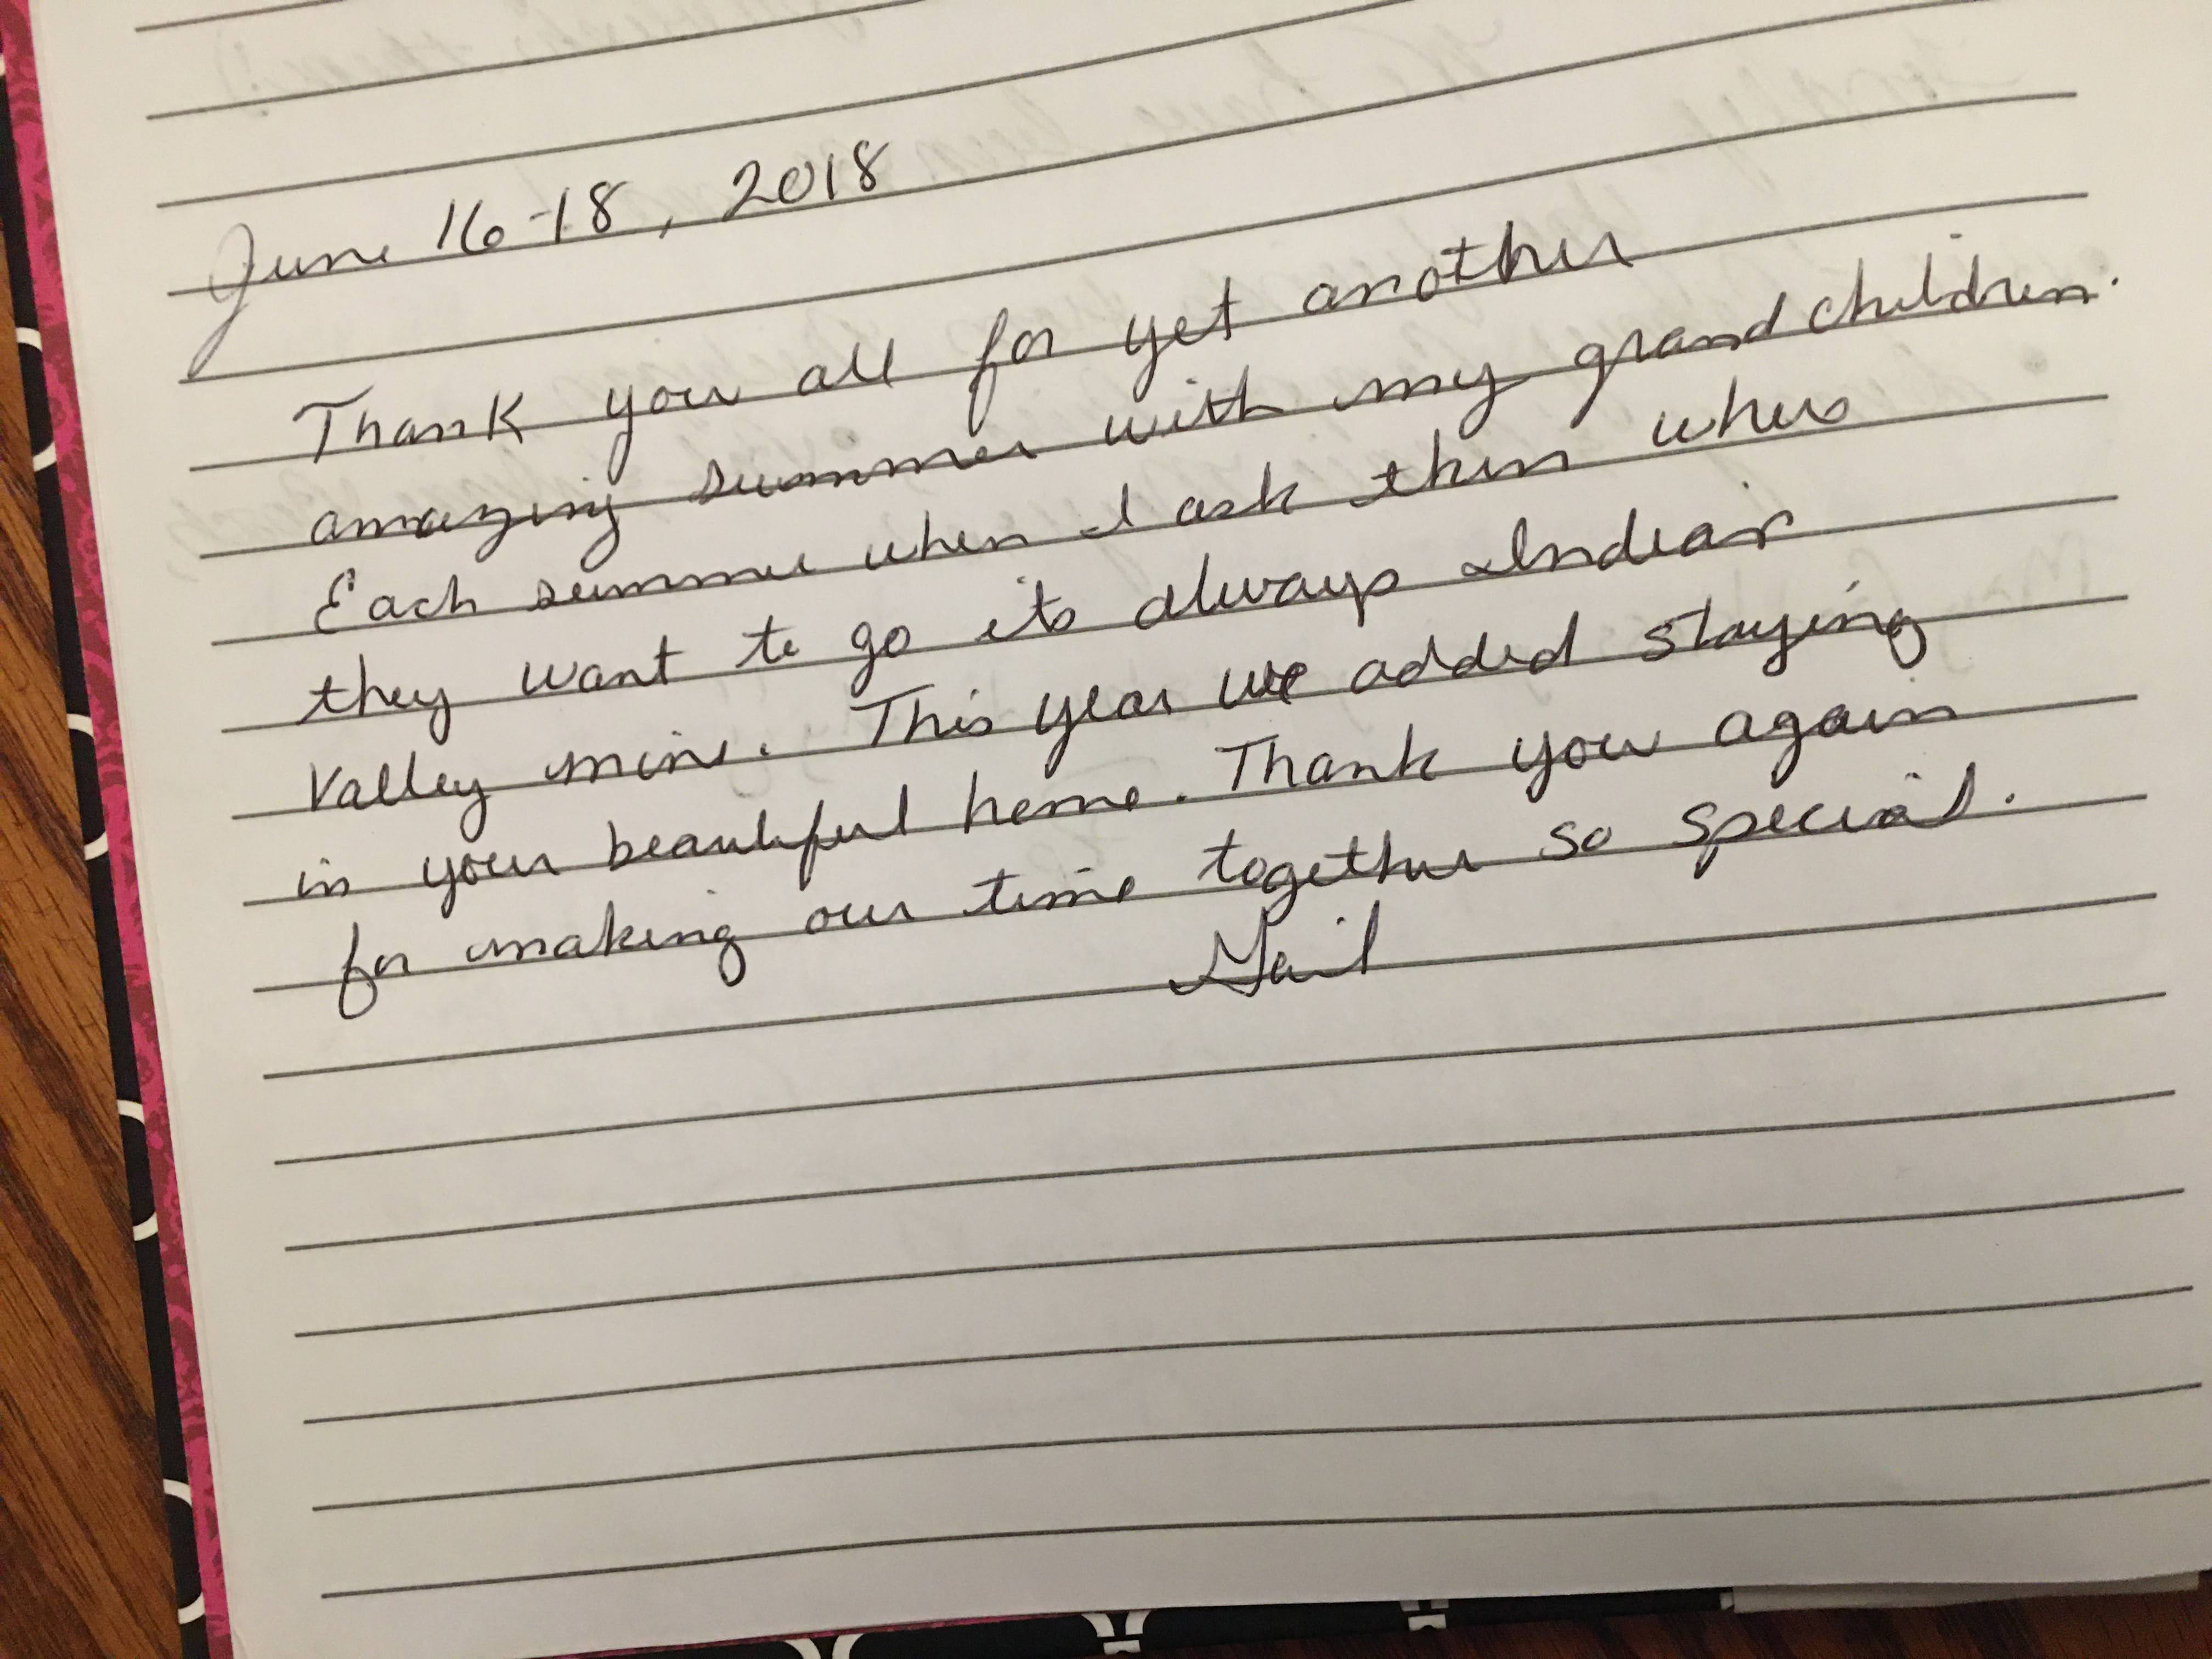 June 16-18, 2018
Thank you all for yet another
amazing summer with my grandchildren.
Each summer when I ask them where
they want to go its always Indian
Valley mine. This year we added staying
in your beautiful home. Thank you again
for making our time together so special.
Gail